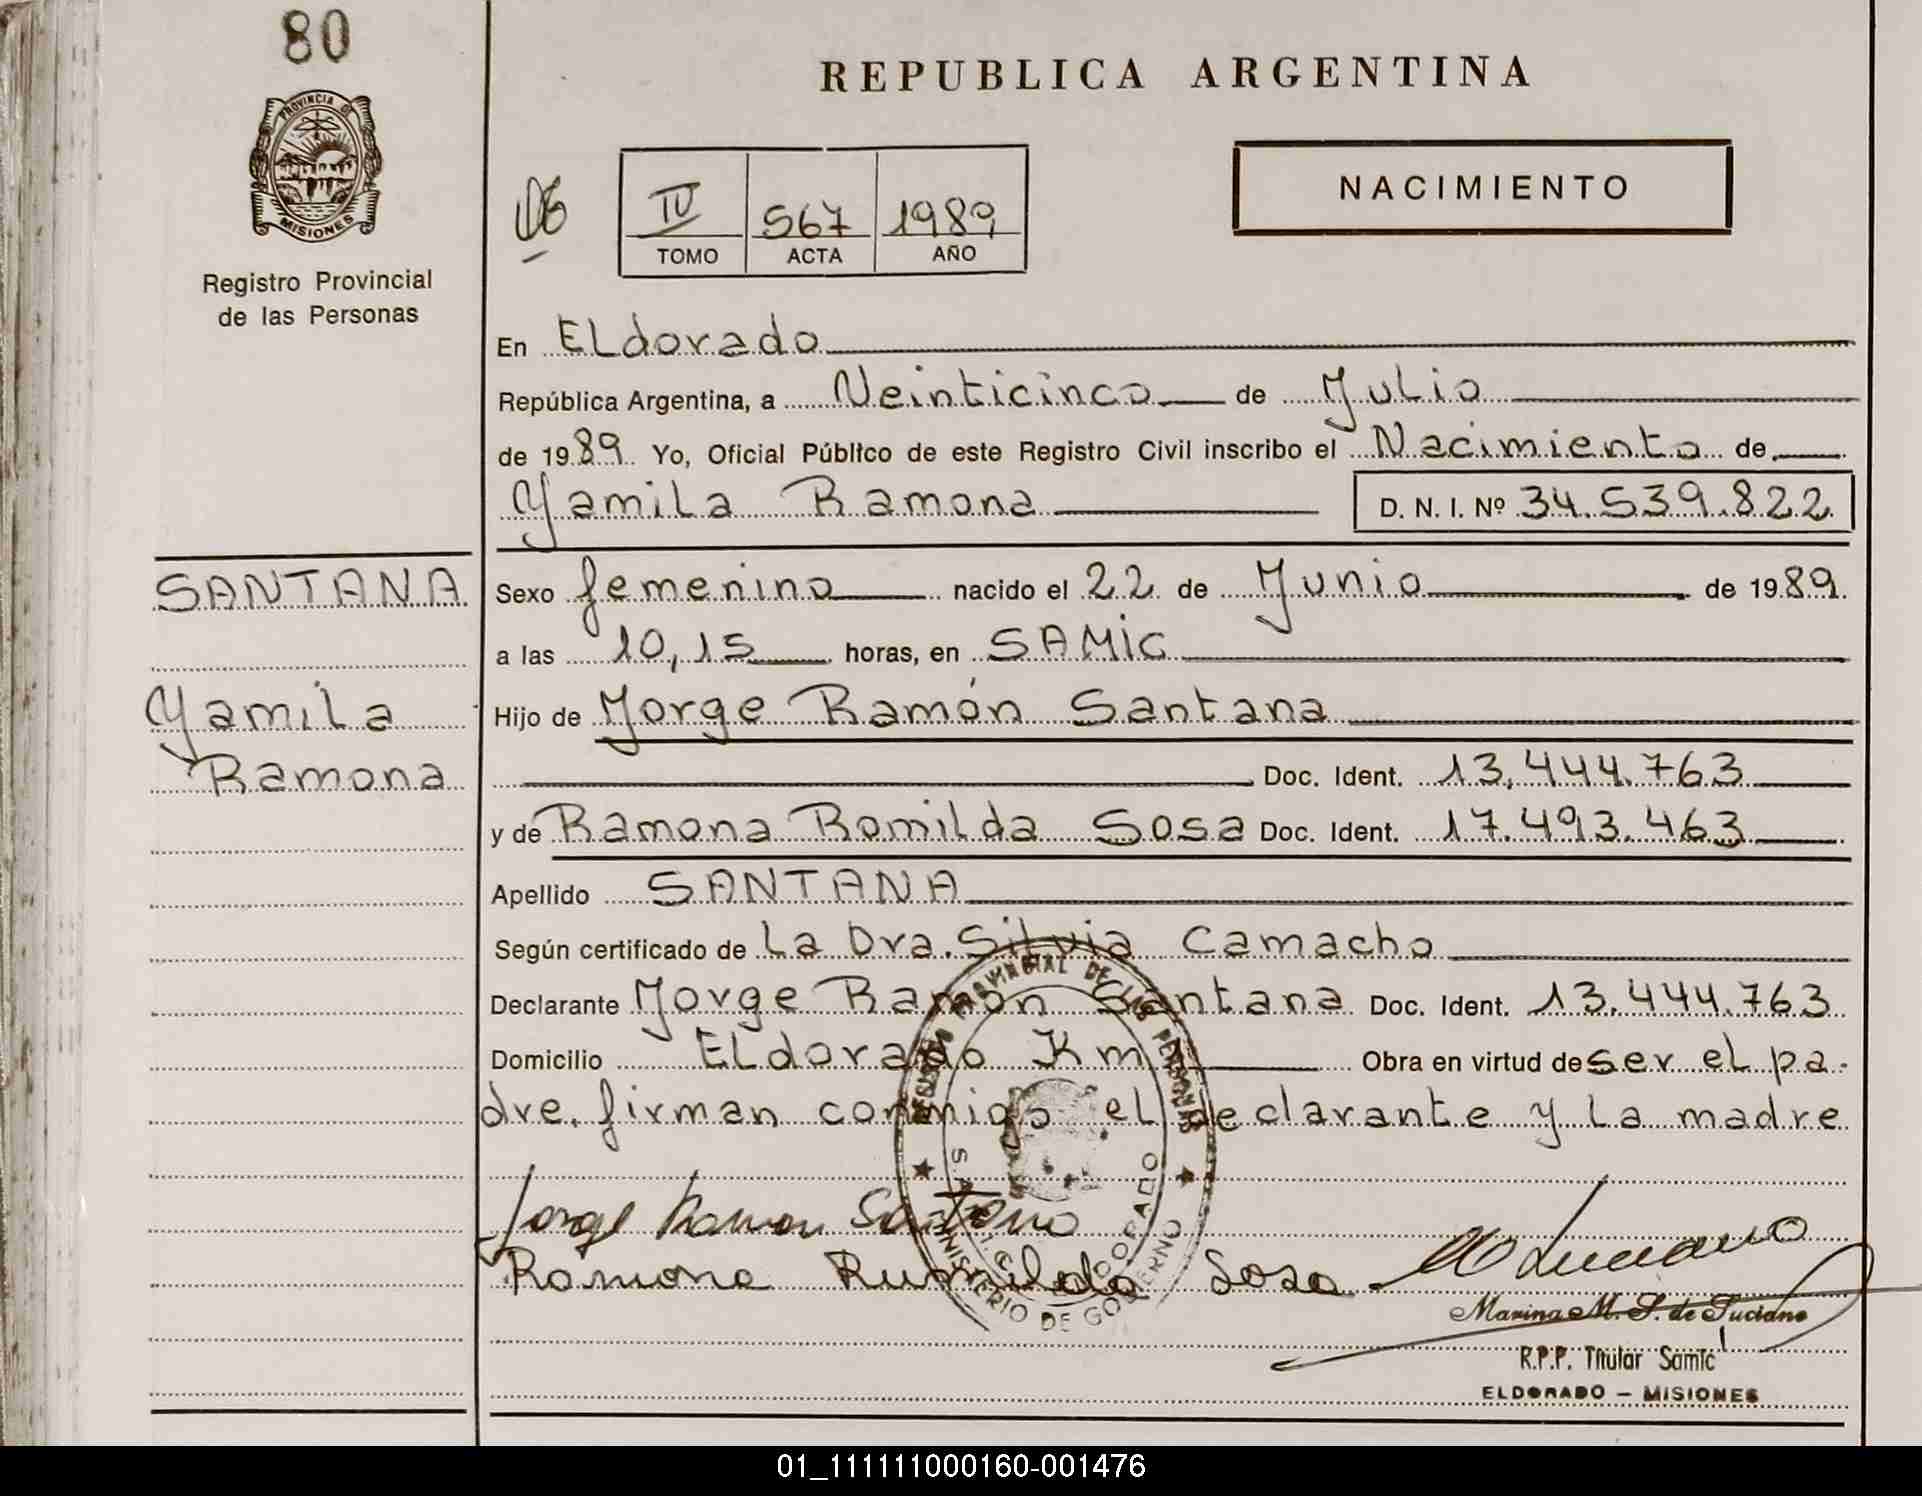 80
PROVINCIA DE
MISIONES
Registro Provincial
de las Personas
REPUBLICA ARGENTINA
NACIMIENTO
IV 567 1989
TOMO ACTA AÑO
En Eldorado
República Argentina, a Veinticinco de Julio
de 1989 Yo, Oficial Público de este Registro Civil inscribo el Nacimiento de
Yamila Ramona D. N. I. Nº 34.539.822
SANTANA
Yamila
Ramona
Sexo femenino nacido el 22 de Junio de 1989.
a las 10,15 horas, en SAMIC
Hijo de Jorge Ramón Santana
Doc. Ident. 13.444.763
y de Ramona Romilda Sosa Doc. Ident. 17.493.463
Apellido SANTANA
Según certificado de La Dra. Silvia Camacho
Declarante Jorge Ramón Santana Doc. Ident. 13.444.763
Domicilio Eldorado Km 1 Obra en virtud de ser el pa-
dre. firman conmigo el declarante y la madre
Jorge Ramon Santana
Ramona Rumilda Sosa
REGISTRO PROVINCIAL DE LAS PERSONAS
MINISTERIO DE GOBIERNO
Marina M. S. de Luciano
R.P.P. Titular Samic
ELDORADO - MISIONES
01_111111000160-001476